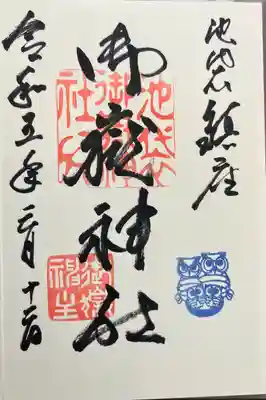 池袋鎮座
御嶽神社
令和五年二月十二日
池袋
御嶽
社
御嶽
神